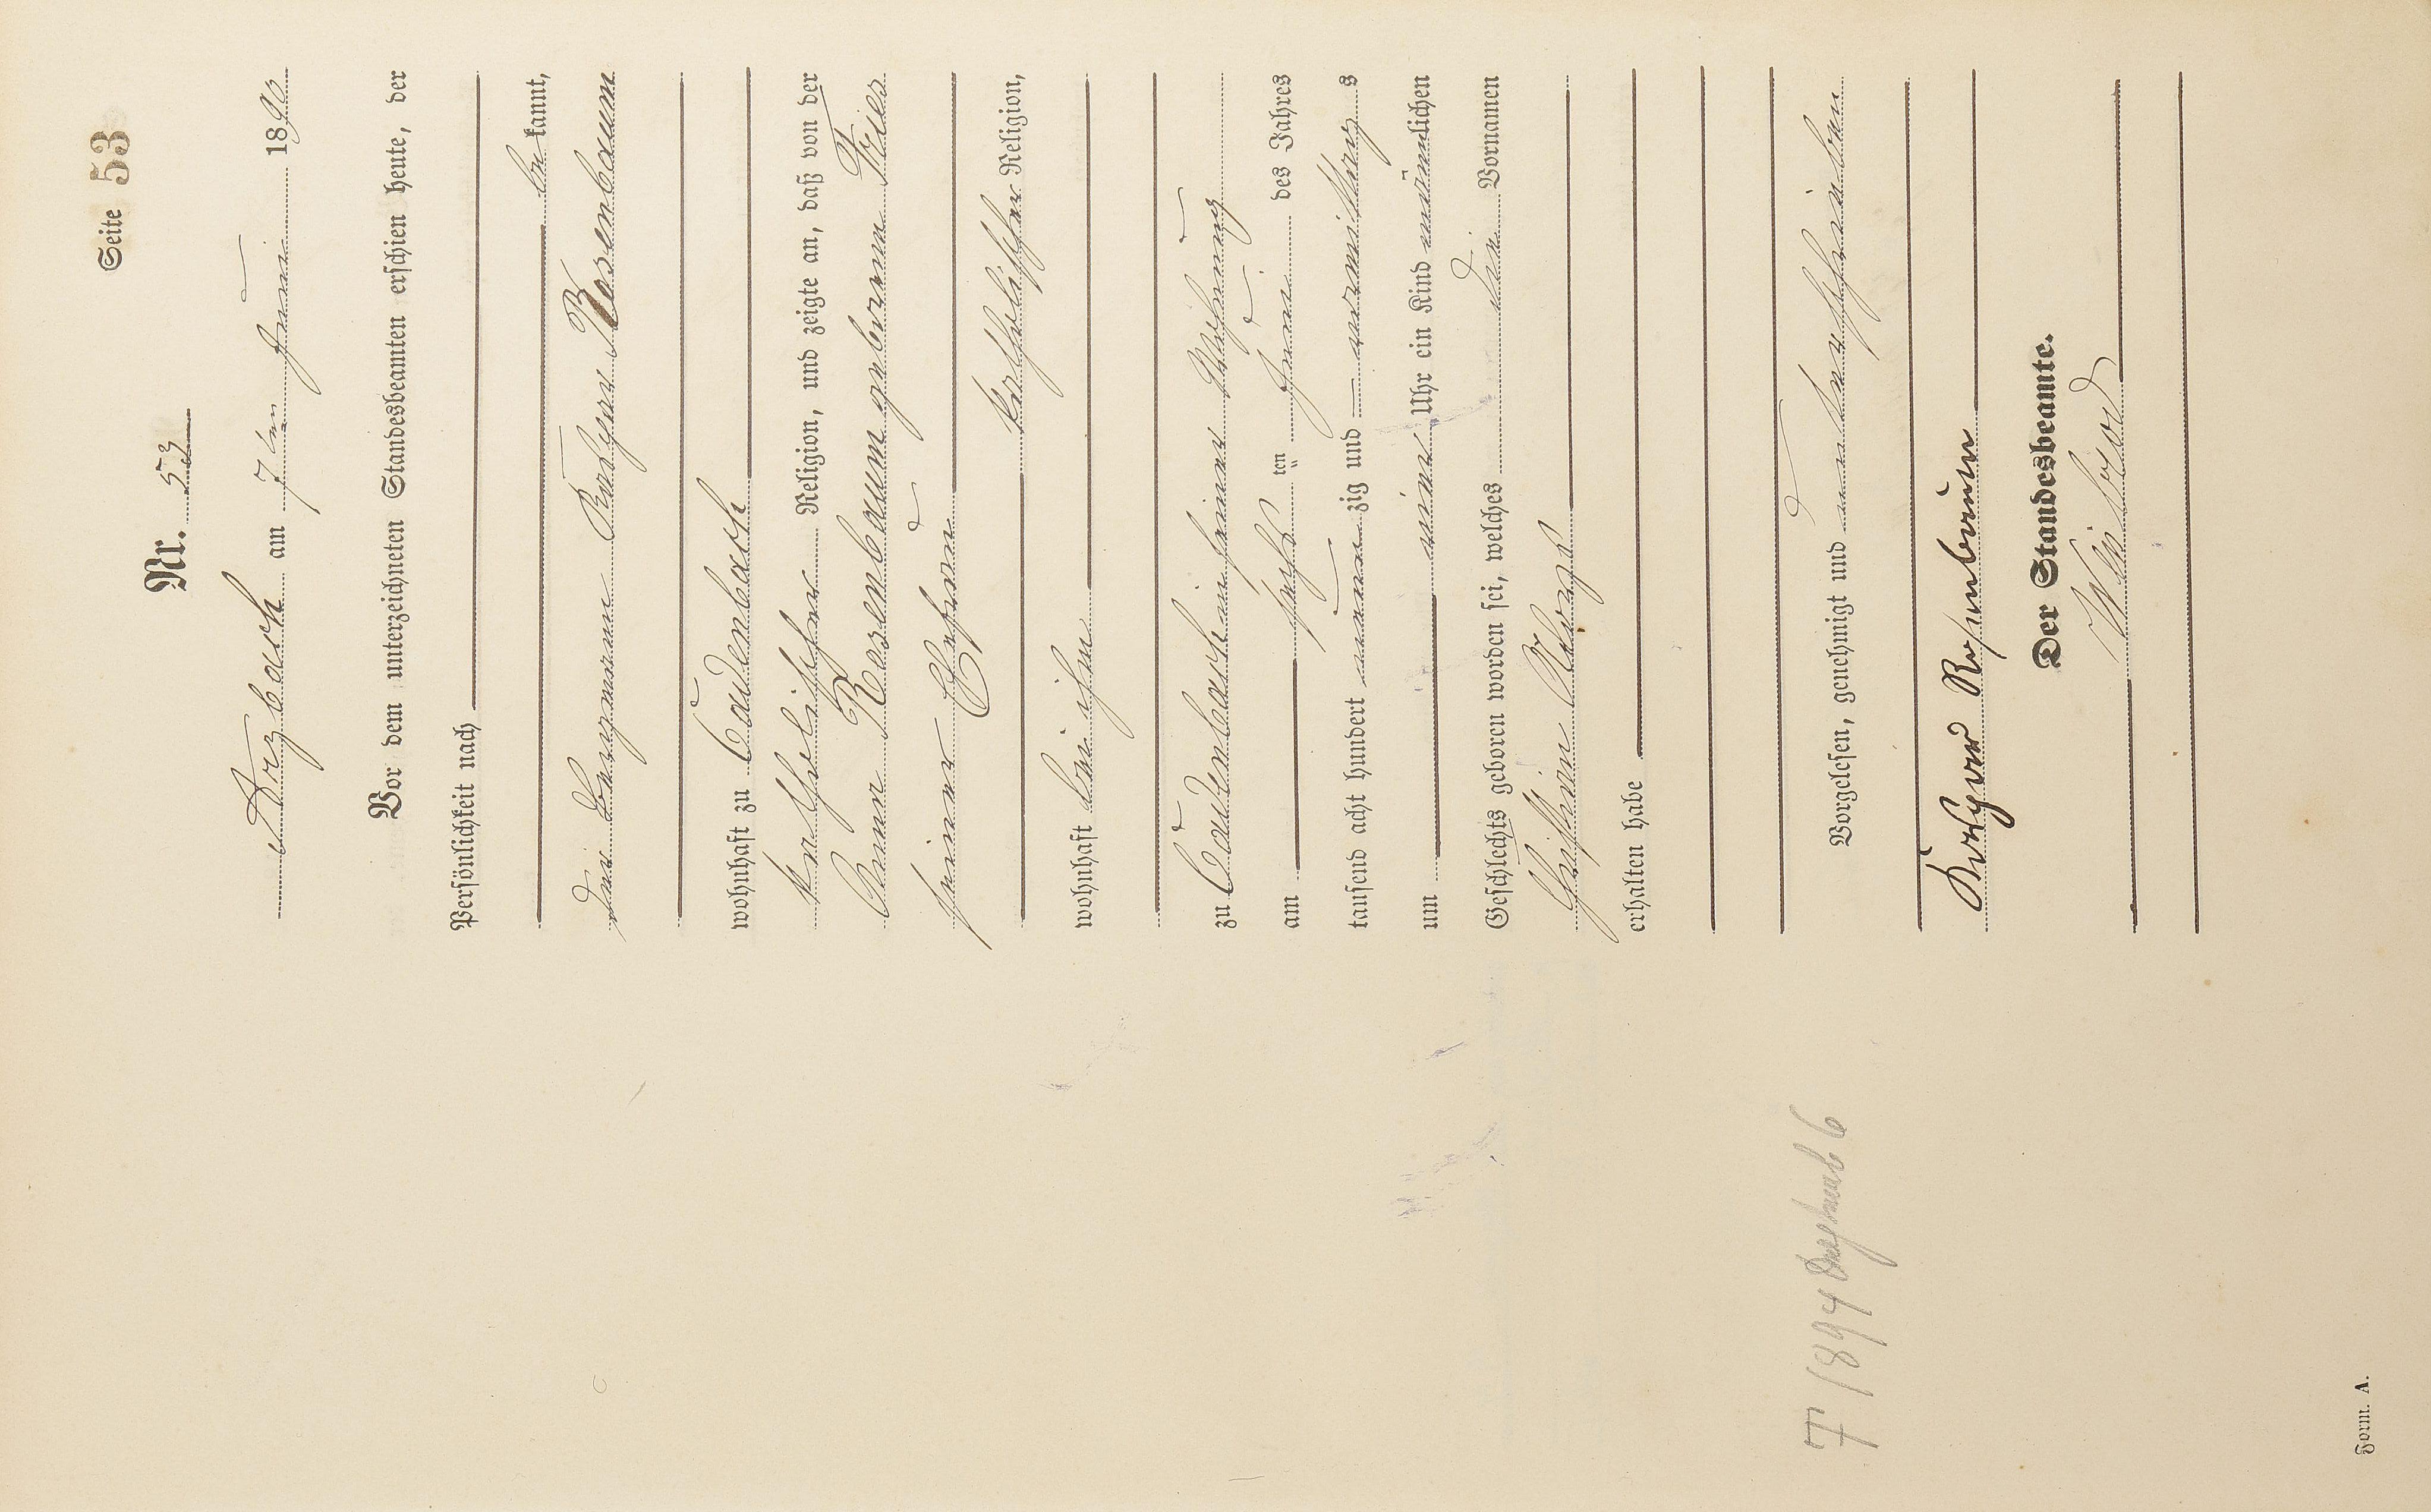 Seite 53
Nr. 53
Arzbach am 7ten Juni 1890
Vor dem unterzeichneten Standesbeamten erschien heute, der
Persönlichkeit nach
be kannt,
der Bergmann Rosenbaum
wohnhaft zu Cadenbach
katholischer Religion, und zeigte an, daß von der
Anna Rosenbaum geborenen Fries
seiner Ehefrau
katholischer Religion,
wohnhaft bei ihm
zu Cadenbach in seiner Wohnung
am sechsten Juni des Jahres
tausend acht hundert neunzig und vormittags
um Uhr ein Kind männlichen
Geschlechts geboren worden sei, welches die Vornamen
erhalten habe
Vorgelesen, genehmigt und unterschrieben
Rosenbaum
Der Standesbeamte.
Form. A.